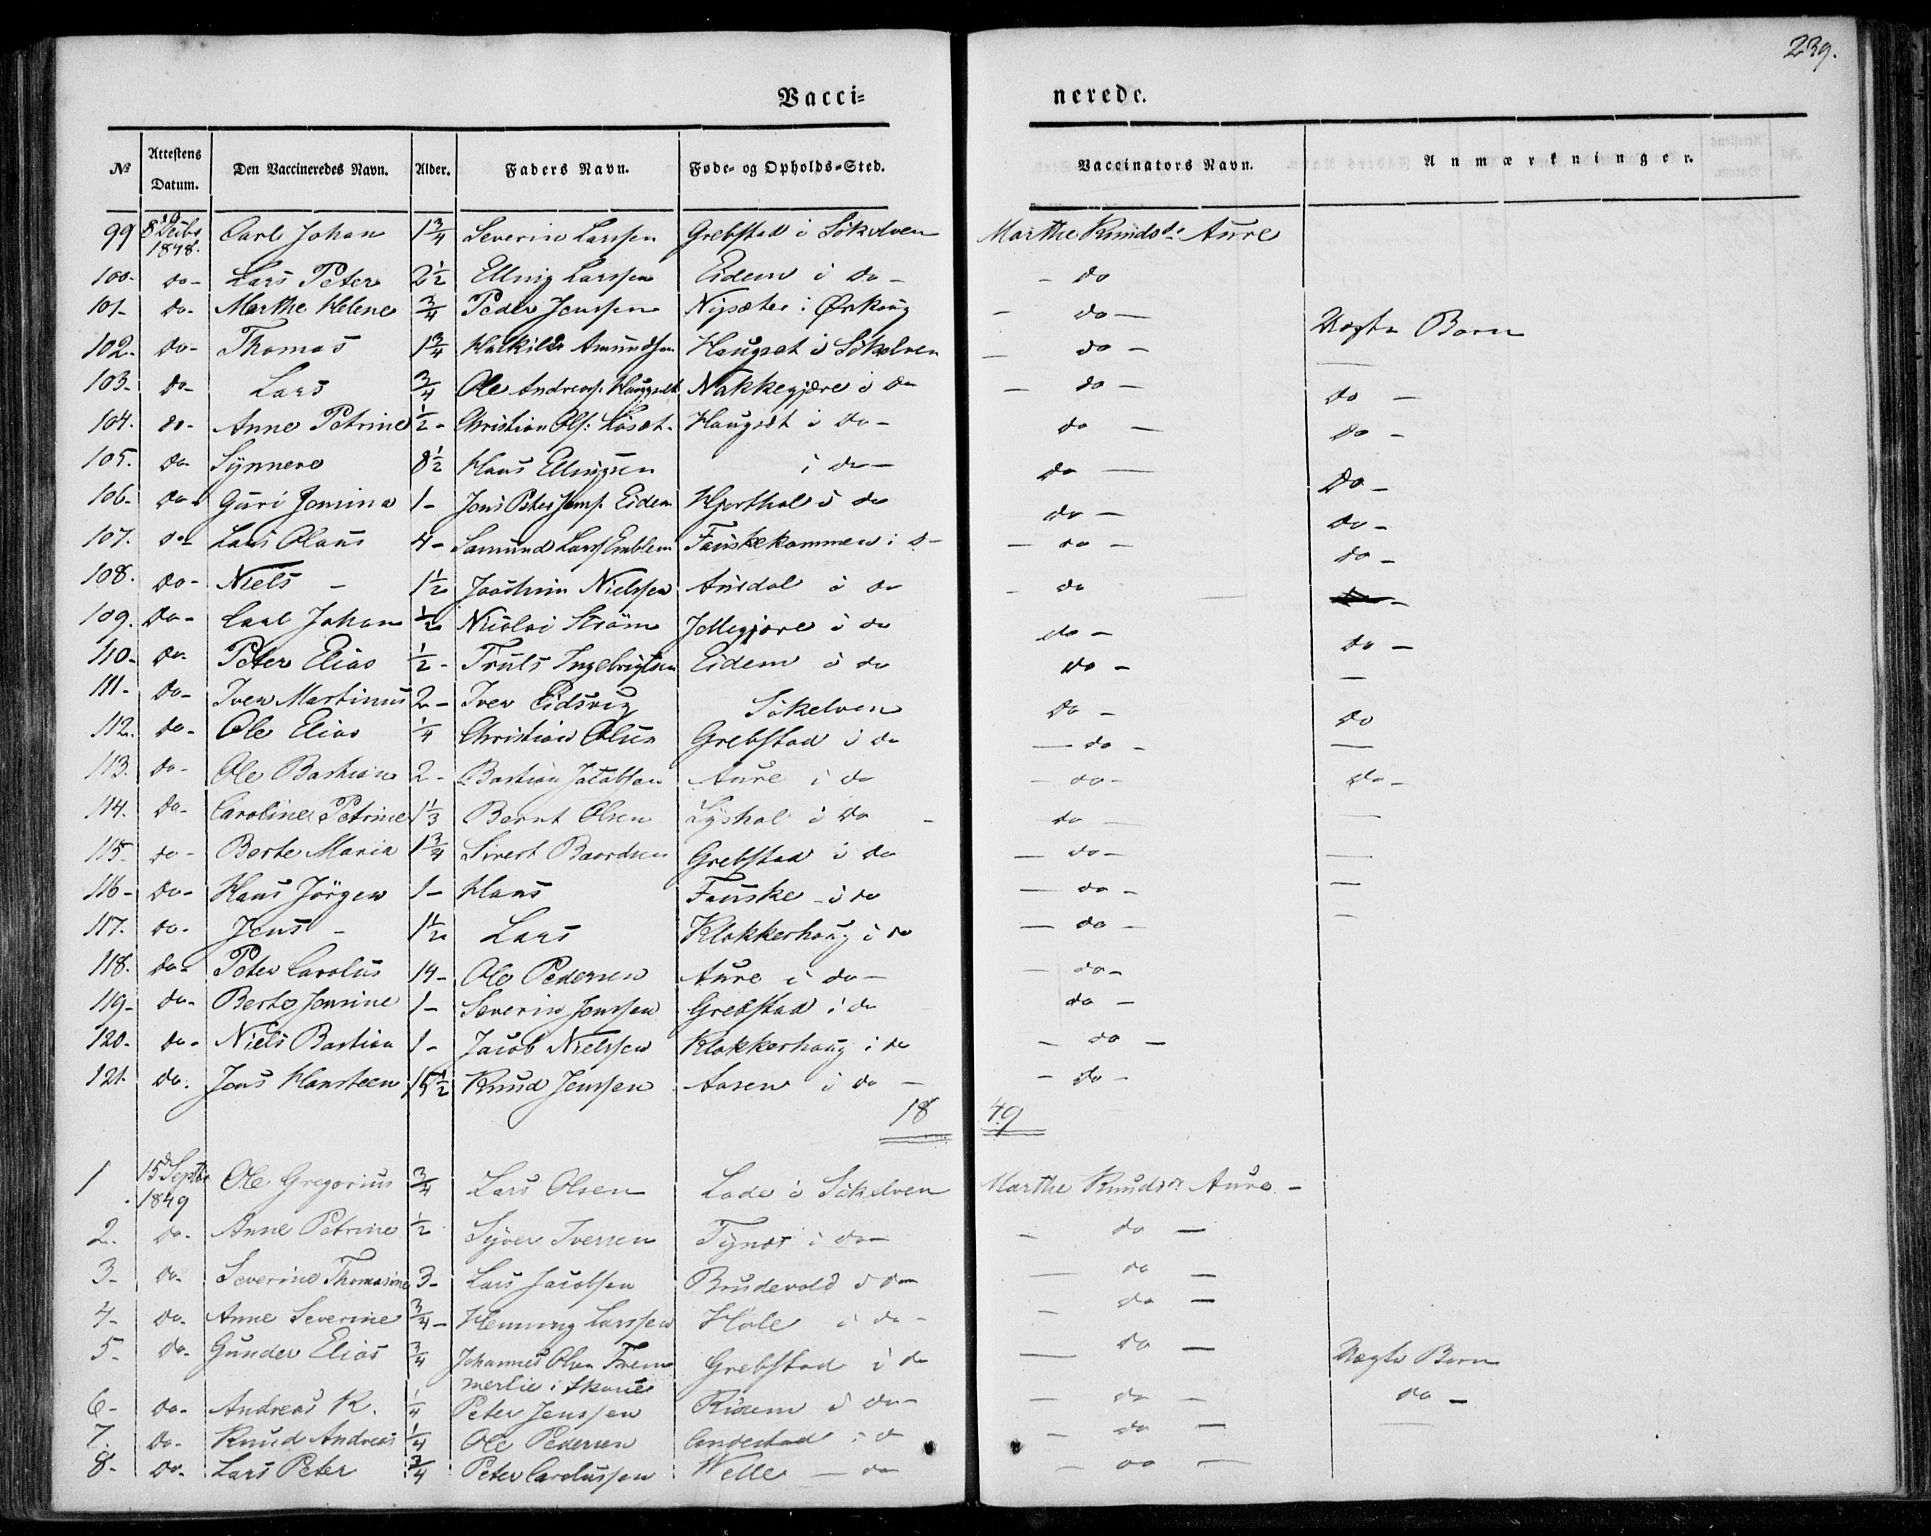 239.
Vacci- nerede.
No Attestens Datum. Den Vaccineredes Navn. Alder. Faders Navn. Føde- og Opholds-Sted. Vaccinators Navn. Anmærkninger.
99 8 Decbr 1848. Carl Johan 1 3/4 Severin Larssen Grebstad i Sökelven Marthe Knudsdr Aure
100- do- Lars Peter 2 1/2 Elling Larssen Eidem i do - - do
101- do- Marthe Helene 3/4 Peder Jenssen Nysæter i Ørskoug - do - Uægte Barn
102. do- Thomas 1 3/4 Halkild Amundsen Haugset i Sökelven - do -
103- do- Lars 3/4 Ole Andreas. Nakkegjære i do - do - do -
104. do- Anne Petrine 1/2 - Christian Ols: Haugset i do - do - do -
105. do- Synneve 8 1/2 Hans Ellingsen i do - do - Do -
106- do- Guri Jonina 1 - Jens Peter Jens. Eidem Hjorthol i do do - do -
107. do- Lars Olaus 4 - Samund Lars Emblem Fauskekammen i d- - do - do -
108. do- Niels - 1 1/2 Joachim Nielssen Aursdal i do - do
109. Do- Carl Johan 1/2 Nicolai Ström Jellegjære i do do - do -
110- do- Peter Elias 1/2 - Truls Ingebrigtsen Eidem i do do -
111- do- Iver Martinus 2 - Iver Eidsvig Sökelven do - do
112. do- Ole Elias 1/4 Christian Olsen Grebstad i do - do -
113. do- Ole Bastian 2 - Bastian Jacobsen Aure i do - do - do -
114. do- Caroline Petrine 1 1/3 Bernt Olsen Lyshol i do - do -
115- do- Berte Maria 1 3/4 Sivert Baardsen Grebstad i do - do -
116- do- Hans Jörgen 1 - Hans Fauske - i do - do -
117. do- Jens - 1 1/2 Lars Klokkerhoug i do - do -
118. do- Peter Carolus 14 - Ole Pedersen Aure i do - - do -
119- do- Berte Jensine 1 - Severin Jenssen Grebstad i do do -
120- do- Niels Bastian 1 - Jacob Nielssen Klokkerhoug i do - do -
121. do. Jens Hansteen 15 1/2 Knud Jenssen Aasen i do - - do -
18 49
1 15 Septbr 1849 Ole Gregorius 3/4 Lars Olsen Lade i Sökelven Marthe Knudsdr Aure -
2. do- Anne Petrine 1/2 Syver Iversen Tynes i do - - do -
3- do- Severine Thomasine 3- Lars Jacobsen Brudevold i do - do -
4- do- Anne Severine 3/4 - Henning Larssen Hole i do - - do -
5- do- Gunder Elias 3/4 Johannes Olsen Frem Grebstad i do do - Uægte Barn
merlie i
6- do- Andreas K. 1/4 Peter Jenssen Eidem i do - - do - do -
7. do- Knud Andreas 1/4 Ole Pedersen i d - do -
8- do- Lars Peter 3/4 Peter Carolussen Welle - do - do -